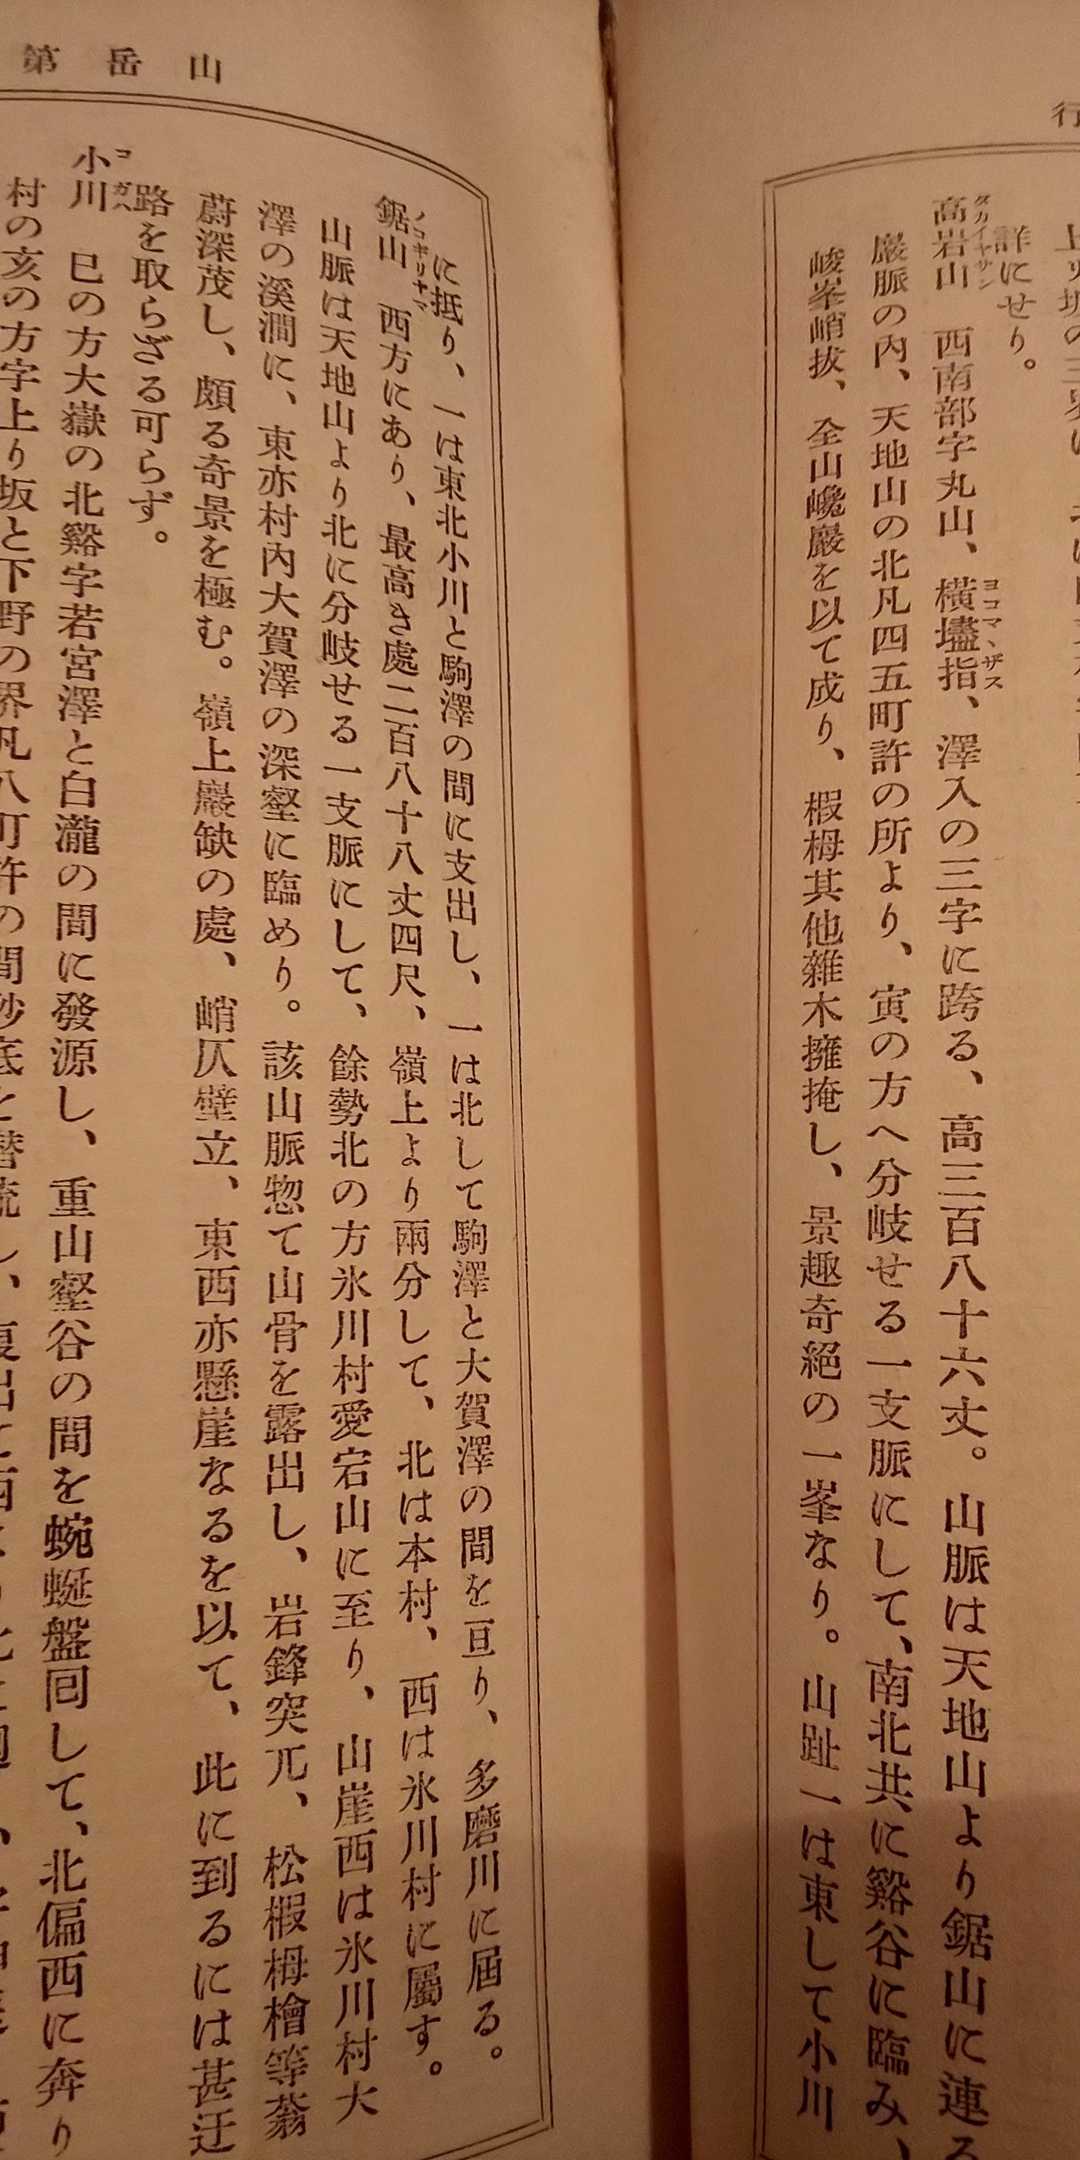 行
詳にせり。
高岩山　西南部字丸山、橫壗指、澤入の三字に跨る、高三百八十六丈。山脈は天地山より鋸山に連る
タカイヤサン
ヨコマヽザス
巖脈の内、天地山の北凡四五町許の所より、寅の方へ分岐せる一支脈にして、南北共に谿谷に臨み、
峻峯峭拔、全山巉巖を以て成り、椵栂其他雜木擁掩し、景趣奇絕の一峯なり。山趾一は東して小川
山岳第
に抵り、一は東北小川と駒澤の間に支出し、一は北して駒澤と大賀澤の間を亘り、多磨川に屆る。
鋸山　西方にあり、最高き處二百八十八丈四尺、嶺上より兩分して、北は本村、西は氷川村に屬す。
ノコギリヤマ
山脈は天地山より北に分岐せる一支脈にして、餘勢北の方氷川村愛宕山に至り、山崖西は氷川村大
澤の溪澗に、東亦村內大賀澤の深壑に臨めり。該山脈惣て山骨を露出し、岩鋒突兀、松椵栂檜等蓊
蔚深茂し、頗る奇景を極む。嶺上巖缺の處、峭仄壁立、東西亦懸崖なるを以て、此に到るには甚迂
路を取らざる可らず。
小川　巳の方大嶽の北谿字若宮澤と白瀧の間に發源し、重山壑谷の間を蜿蜒盤囘して、北偏西に奔り
コガハ
村の亥の方字上り坂と下野の界凡八町許の間砂底と潛流し、復出て西